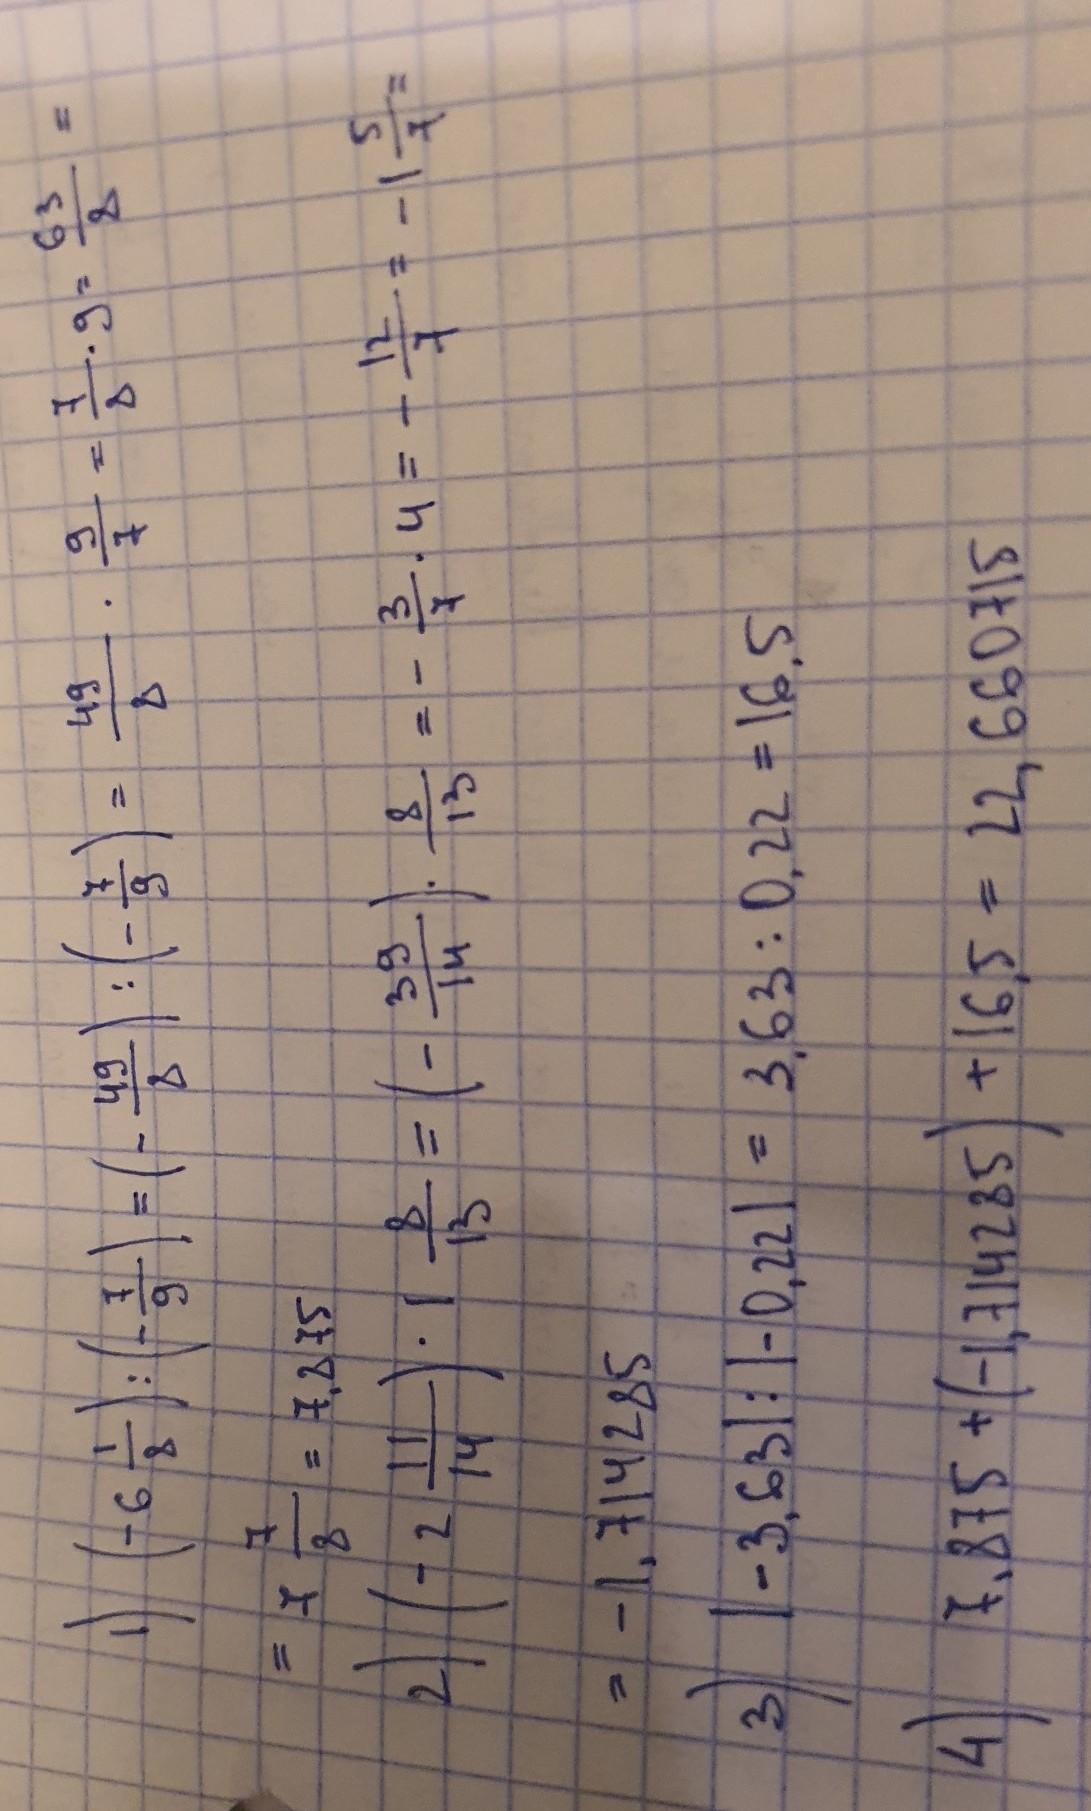 1) (-6 1/8) : (-7/9) = (-49/8) : (-7/9) = 49/8 · 9/7 = 7/8 · 9 = 63/8 =
= 7 7/8 = 7,875
2) (-2 11/14) · 1 8/13 = (-39/14) · 8/13 = -3/7 · 4 = -12/7 = -1 5/7 =
= -1,714285
3) |-3,63| : |-0,22| = 3,63 : 0,22 = 16,5
4) 7,875 + (-1,714285) + 16,5 = 22,660715